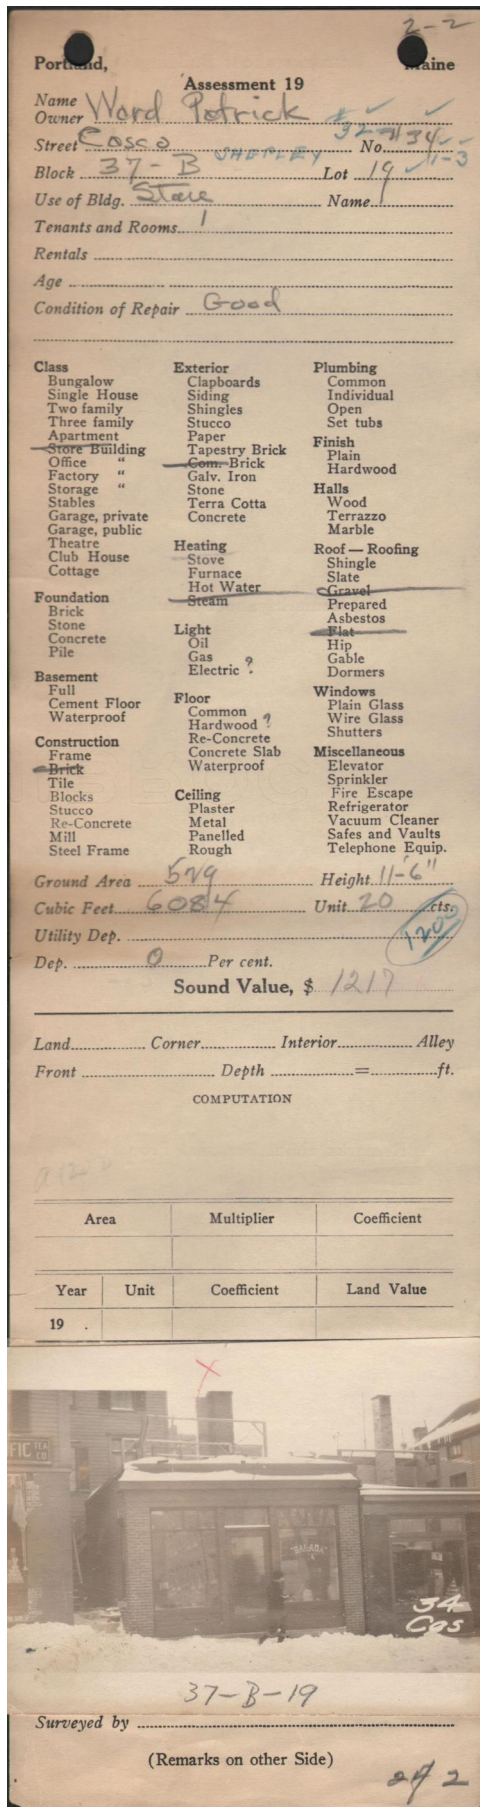 2-2
Portland, Maine
Assessment 19
Name
Owner Ward Patrick
Street Casco No. 34
32-34
SHEPLEY 1-3
Block 37-B Lot 19
Use of Bldg. Store Name
Tenants and Rooms 1
Rentals
Age
Condition of Repair Good
Class
Bungalow
Single House
Two family
Three family
Apartment
Store Building
Office "
Factory "
Storage "
Stables
Garage, private
Garage, public
Theatre
Club House
Cottage
Foundation
Brick
Stone
Concrete
Pile
Basement
Full
Cement Floor
Waterproof
Construction
Frame
Brick
Tile
Blocks
Stucco
Re-Concrete
Mill
Steel Frame
Exterior
Clapboards
Siding
Shingles
Stucco
Paper
Tapestry Brick
Com. Brick
Galv. Iron
Stone
Terra Cotta
Concrete
Heating
Stove
Furnace
Hot Water
Steam
Light
Oil
Gas
Electric ?
Floor
Common
Hardwood ?
Re-Concrete
Concrete Slab
Waterproof
Ceiling
Plaster
Metal
Panelled
Rough
Plumbing
Common
Individual
Open
Set tubs
Finish
Plain
Hardwood
Halls
Wood
Terrazzo
Marble
Roof — Roofing
Shingle
Slate
Gravel
Prepared
Asbestos
Flat
Hip
Gable
Dormers
Windows
Plain Glass
Wire Glass
Shutters
Miscellaneous
Elevator
Sprinkler
Fire Escape
Refrigerator
Vacuum Cleaner
Safes and Vaults
Telephone Equip.
Ground Area 529 Height 11-6"
Cubic Feet 6084 Unit 20 cts.
Utility Dep. 1200
Dep. 0 Per cent.
Sound Value, $ 1217
Land Corner Interior Alley
Front Depth = ft.
COMPUTATION
Area Multiplier Coefficient
Year Unit Coefficient Land Value
19 .
FIC TEA CO
"SAGADA"
34
Cas
37-B-19
Surveyed by
(Remarks on other Side)
2